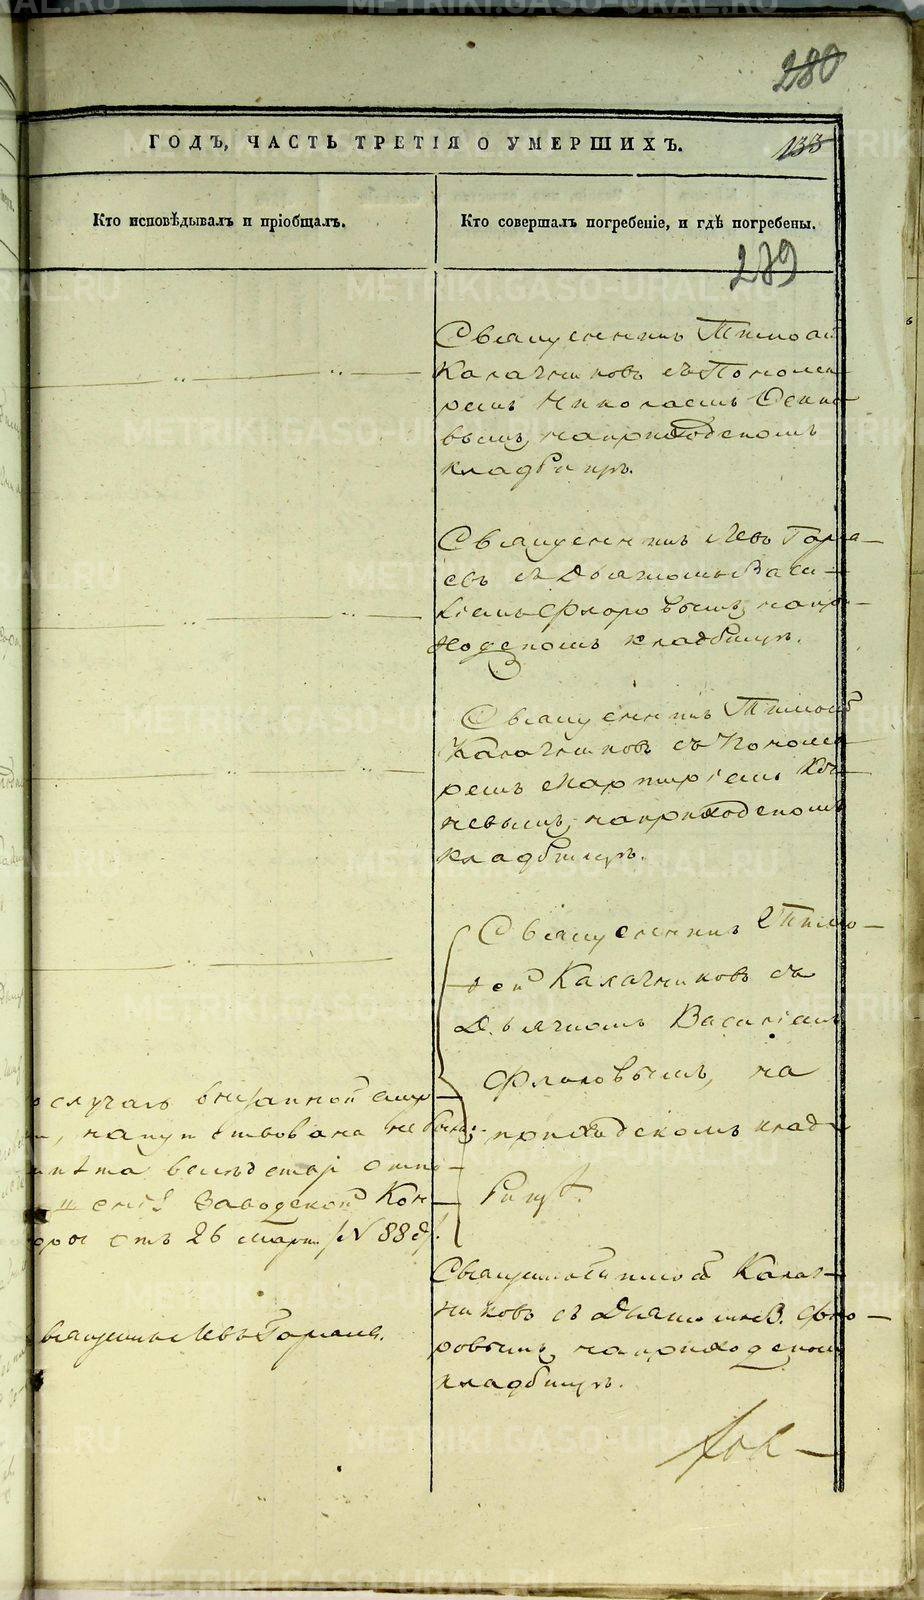 280
ГОДЪ, ЧАСТЬ ТРЕТІЯ О УМЕРШИХЪ.
133
Кто исповѣдывалъ и пріобщалъ.
Кто совершалъ погребеніе, и гдѣ погребены.
279
Священникъ Тимоѳей
Калачниковъ съ Понома-
ремъ Николаемъ
вымъ, на приходскомъ
кладбищѣ.
Священникъ Левъ Гаря-
евъ съ Дьячкомъ Васи-
ліемъ Флоровымъ, на при-
ходскомъ кладбищѣ.
Священникъ Тимоѳей
Калачниковъ съ Понома-
ремъ Мартиріемъ
невымъ, на приходскомъ
кладбищѣ.
Священникъ Тимо-
ѳей Калачниковъ съ
Дьячкомъ Василіемъ
Флоровымъ, на
приходскомъ клад-
бищѣ.
случаю внезапной смер-
напутствована не была
вслѣдствіе отно-
шенія Заводской Кон-
торы отъ 26 Марта № 882
Священникъ Левъ Гаряевъ.
Священникъ Тимоѳей Калач-
никовъ съ Дьячкомъ В. Фло-
ровымъ, на приходскомъ
кладбищѣ.
METRIKI.GASO-URAL.RU